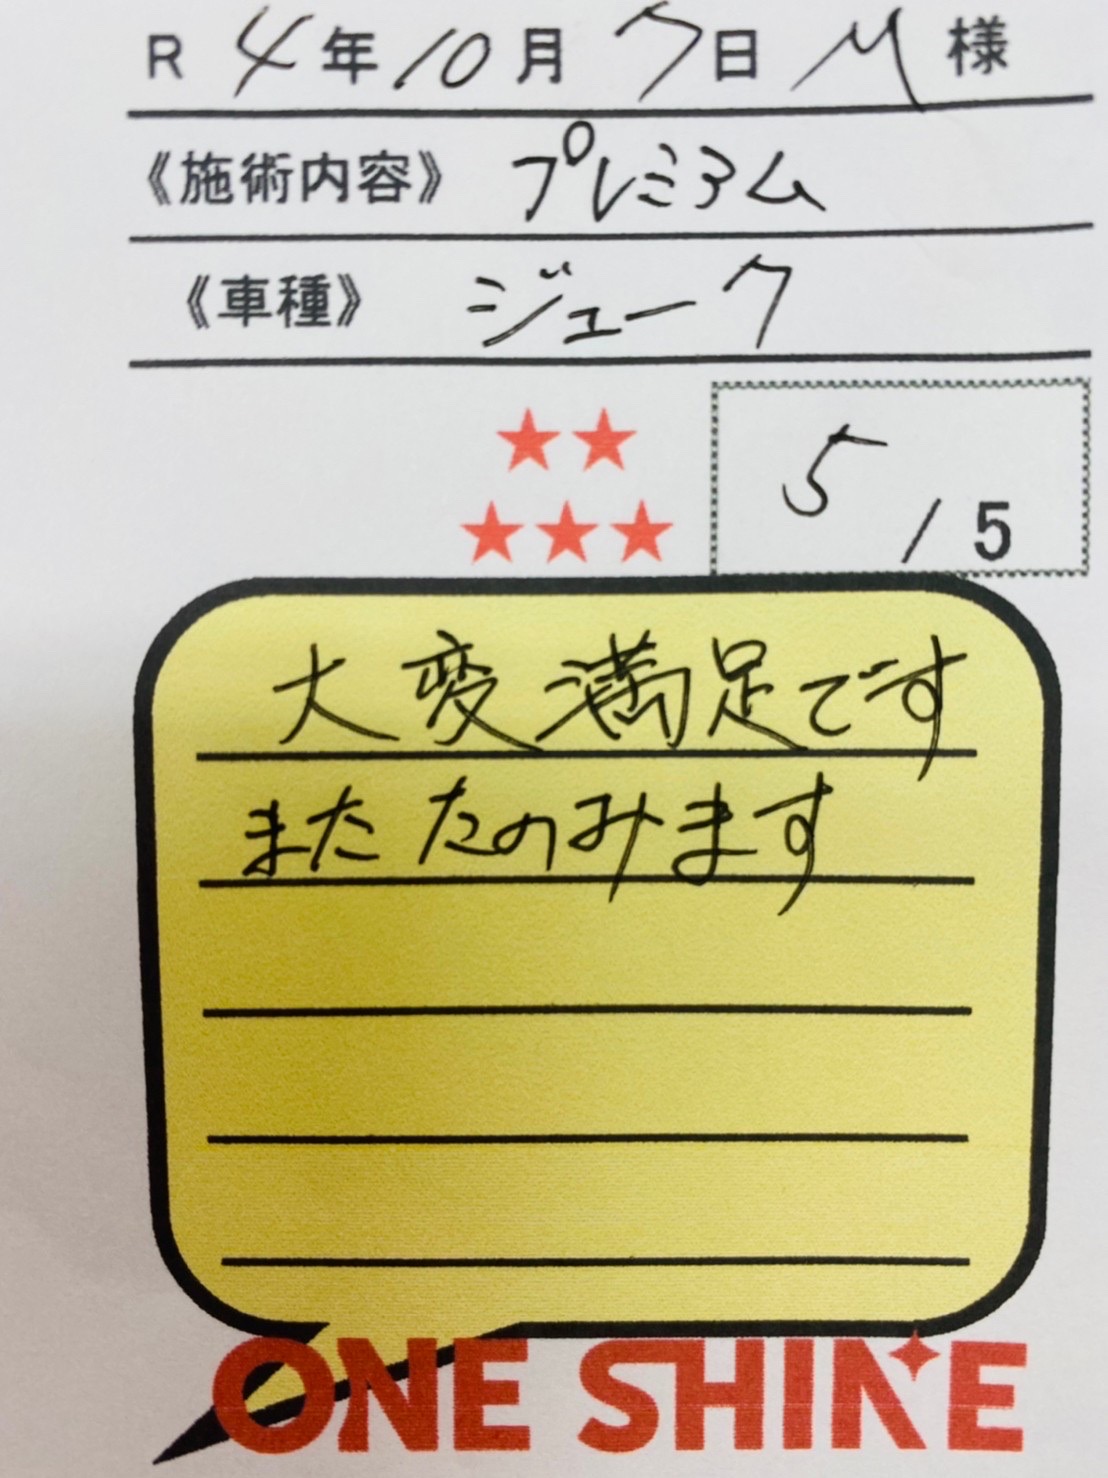 R 4年10月7日 M 様
《施術内容》 プレミアム
《車種》 ジューク
5 / 5
大変満足です
またたのみます
ONE SHINE